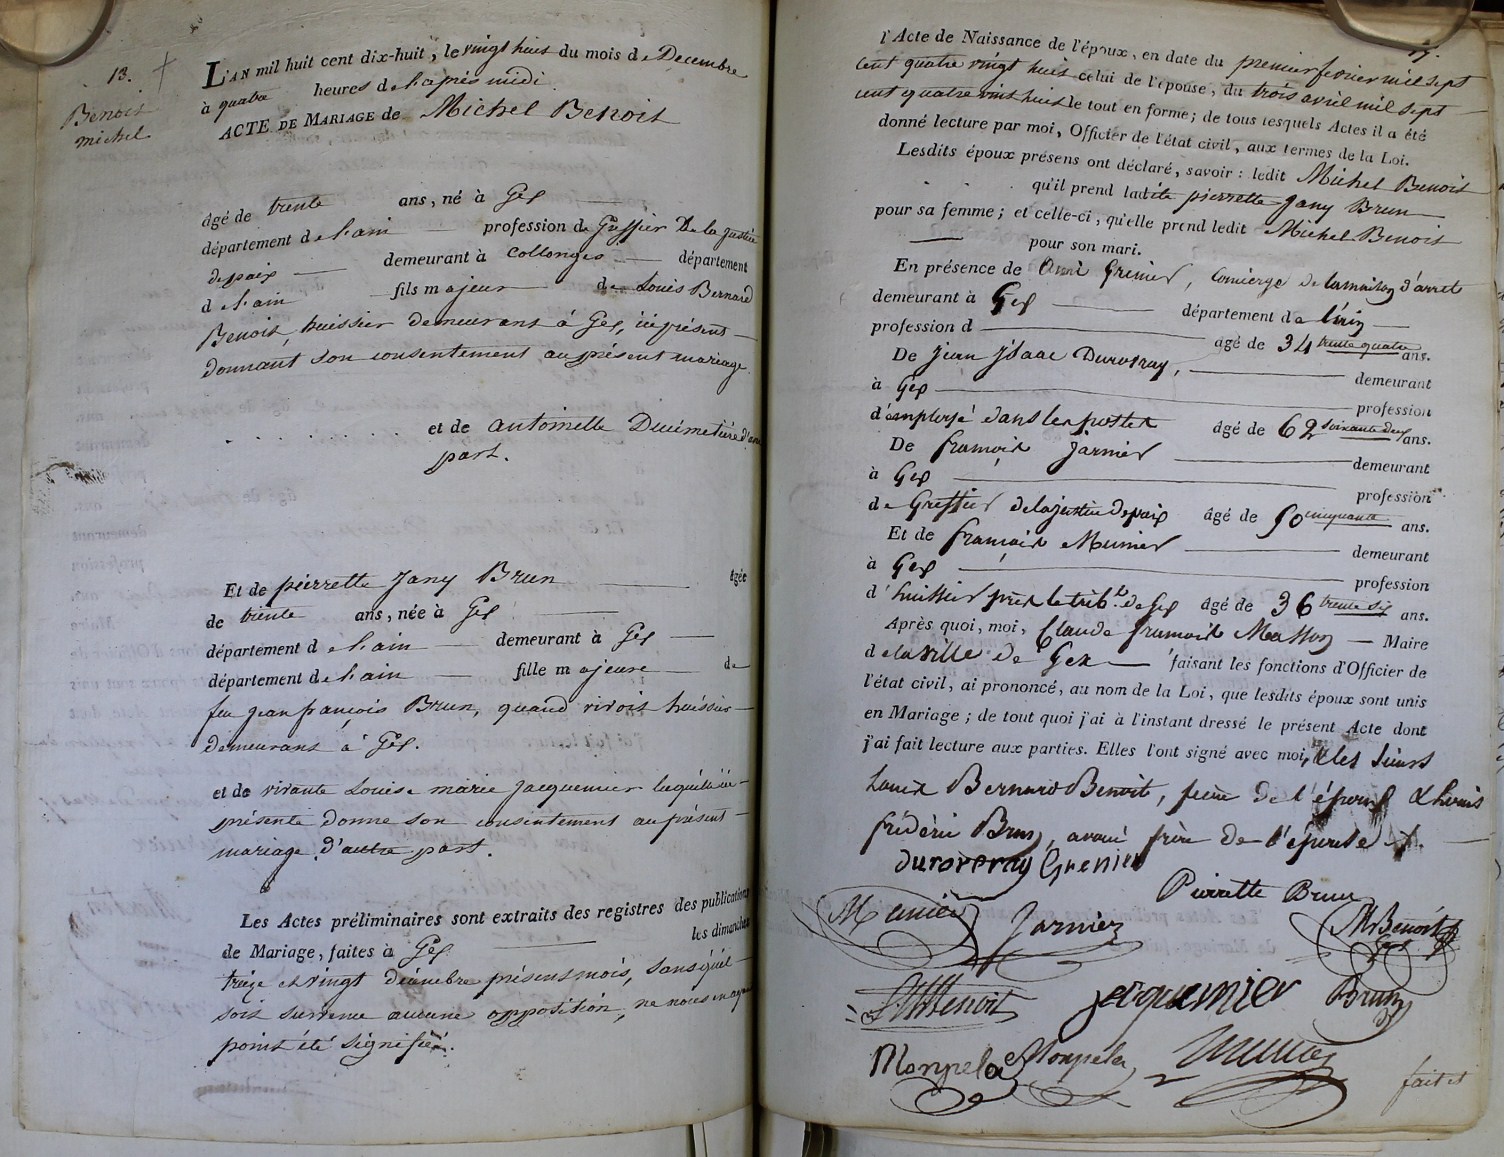 13.
Benoit
michel
L'AN mil huit cent dix-huit, le vingt huit du mois de Decembre
à quatre heures de l'aprés midi
ACTE DE MARIAGE de Michel Benoit
âgé de trente ans, né à Gex
département de l'ain profession de Greffier De la justice
de paix demeurant à Collonges département
de l'ain fils majeur de Louis Bernard
Benoit, huissier demeurant à Gex, ici présent
donnant son consentement au présent mariage.
et de antoinette Ducimetière d'une
part.
Et de pierrette Jany Brun âgée
de trente ans, née à Gex
département de l'ain demeurant à Gex
département de l'ain fille majeure de
feu jean françois Brun, quand vivoit huissier
demeurant à Gex.
et de vivante Louise marie Jacquemier laquelle ici
présente donne son consentement au présent
mariage d'autre part.
Les Actes préliminaires sont extraits des registres des publications
de Mariage, faites à Gex les dimanches
treize et vingt décembre présent mois, sans qu'il
soit survenu aucune opposition, ne nous en ayant
point été signifiée.
l'Acte de Naissance de l'époux, en date du premier fevrier mil sept
cent quatre vingt huit celui de l'épouse, du trois avril mil sept
cent quatre vint huit le tout en forme; de tous lesquels Actes il a été
donné lecture par moi, Officier de l'état civil, aux termes de la Loi.
Lesdits époux présens ont déclaré, savoir: ledit Michel Benoit
qu'il prend ladite pierrette Jany Brun
pour sa femme; et celle-ci, qu'elle prend ledit Michel Benoit
pour son mari.
En présence de Amé Grenier, Concierge de la maison d'arret
demeurant à Gex département de l'ain
profession d âgé de 34 trente quatre ans.
De Jean jsaac Duroveray, demeurant
à Gex profession
d'employé dans les postes âgé de 62 soixante deux ans.
De françois Jarnier demeurant
à Gex profession
de Greffier de la justice de paix âgé de 50 cinquante ans.
Et de françois Munier demeurant
à Gex profession
d'huissier près le trib.l de Gex âgé de 36 trente six ans.
Après quoi, moi, Claude françois Masson Maire
de la Ville de Gex faisant les fonctions d'Officier de
l'état civil, ai prononcé, au nom de la Loi, que lesdits époux sont unis
en Mariage; de tout quoi j'ai à l'instant dressé le présent Acte dont
j'ai fait lecture aux parties. Elles l'ont signé avec moi, & les sieurs
Louis Bernard Benoit, père de l'époux & Louis
frédéric Brun, avoué frère de l'épouse
duroveray Grenier
Pierrette Brun
Munier Jarnier MBenoit
LBBenoit jacquemier Brun
Monpela Monpela
fait et